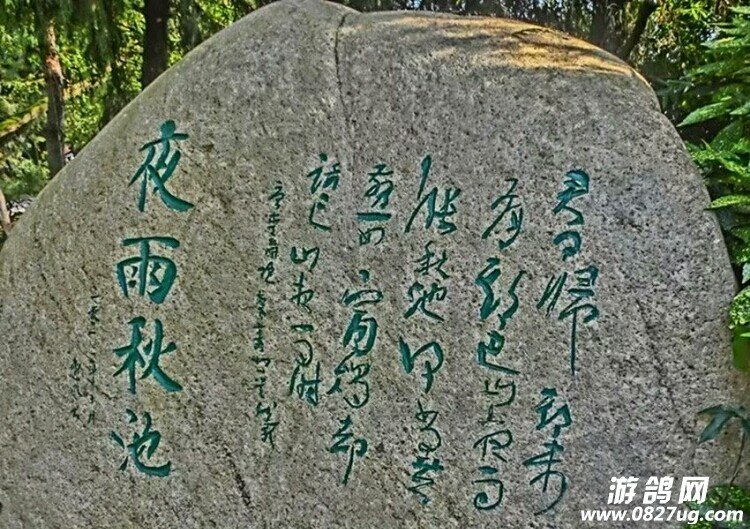 君问歸期未
有期巴山夜雨
漲秋池何当共
剪西窗燭却
話巴山夜雨时
夜雨秋池
游鸽网
www.0827ug.com